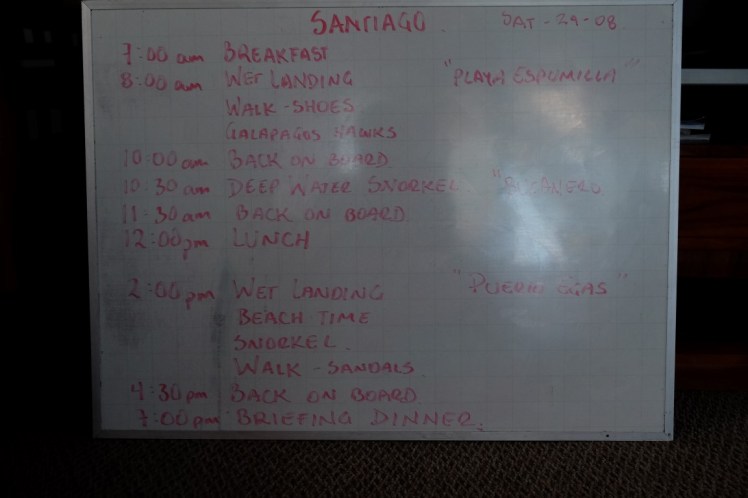 SANTIAGO. SAT-29-08
7:00 am BREAKFAST
8:00 am WET LANDING "PLAYA ESPUMILLA"
WALK-SHOES
GALAPAGOS HAWKS
10:00 am BACK ON BOARD
10:30 am DEEP WATER SNORKEL "BUCANERO
11:30 am BACK ON BOARD
12:00pm LUNCH
2:00pm WET LANDING "PUERTO EGAS"
BEACH TIME
SNORKEL.
WALK - SANDALS
4:30pm BACK ON BOARD
7:00pm BRIEFING DINNER.